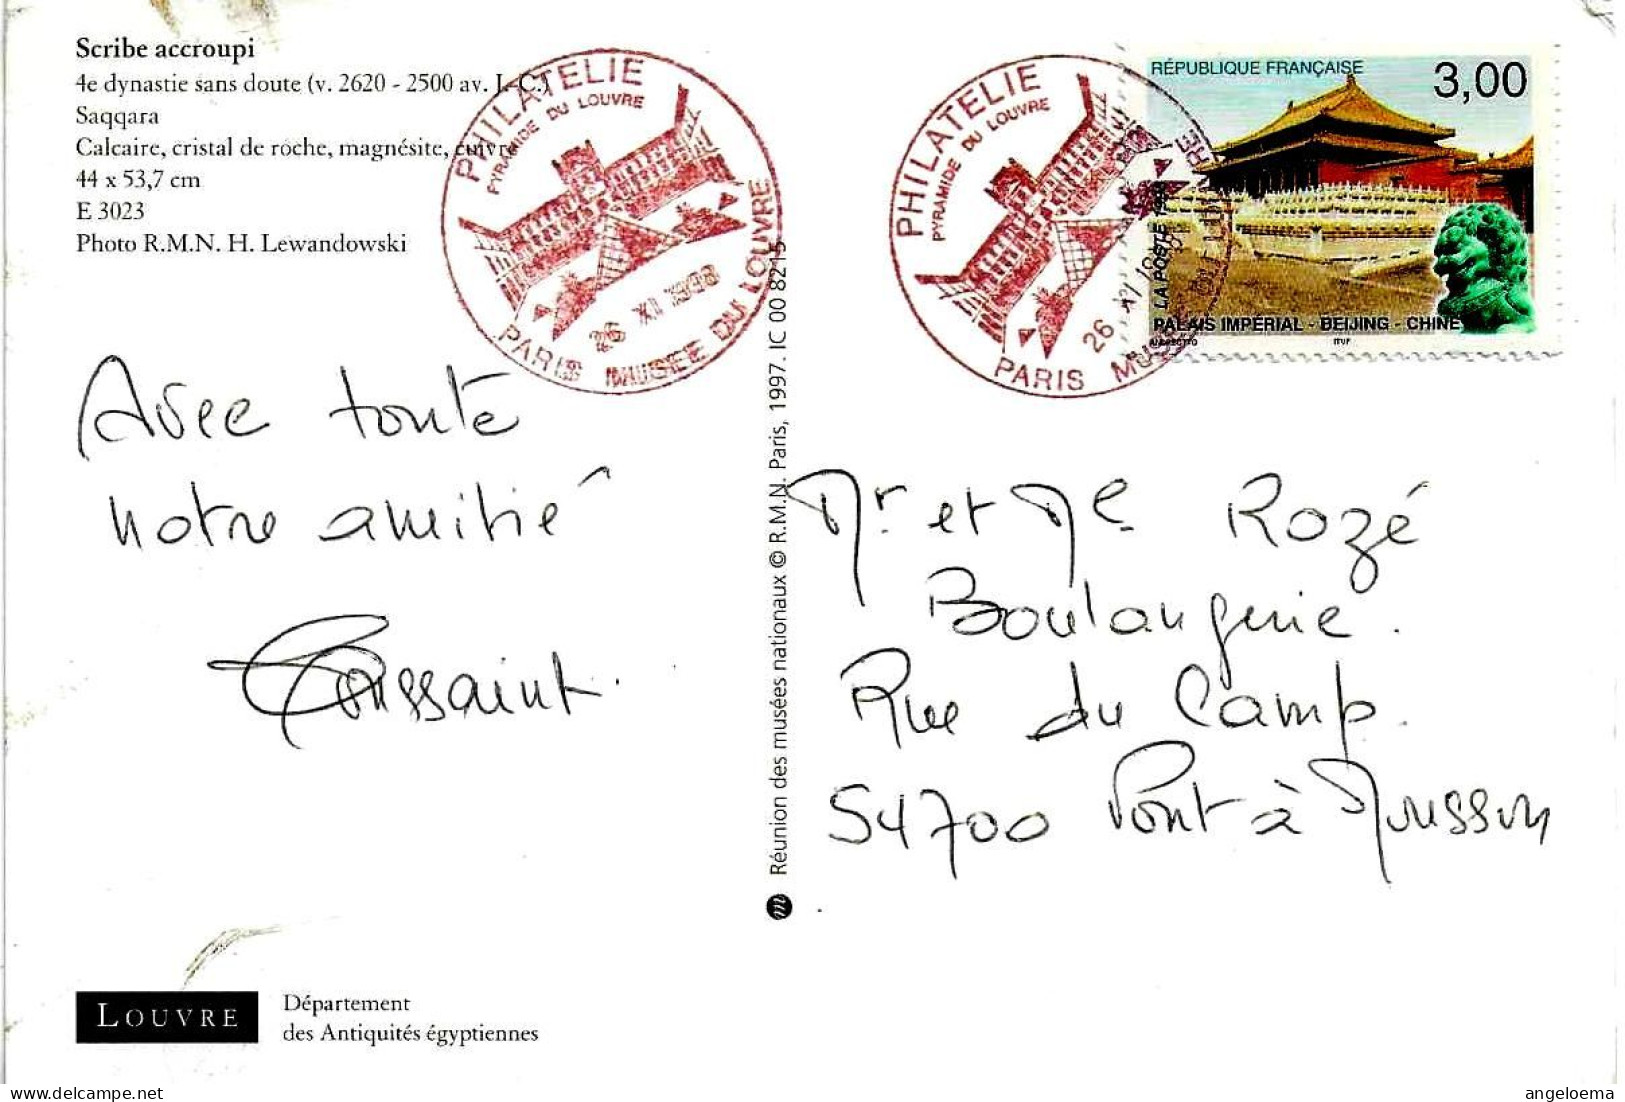 Scribe accroupi
4e dynastie sans doute (v. 2620 - 2500 av. J.-C.)
Saqqara
Calcaire, cristal de roche, magnésite, cuivre
44 x 53,7 cm
E 3023
Photo R.M.N. H. Lewandowski
PHILATELIE
PYRAMIDE DU LOUVRE
26 XI 1998
PARIS MUSEE DU LOUVRE
PHILATELIE
PYRAMIDE DU LOUVRE
26 XI 1998
PARIS MUSEE DU LOUVRE
RÉPUBLIQUE FRANÇAISE
3,00
LA POSTE 1998
PALAIS IMPÉRIAL - BEIJING - CHINE
ANDREOTTO
ITVF
Avec toute
notre amitié
Toussaint.
Réunion des musées nationaux © R.M.N. Paris, 1997. IC 00 8215
m
Mr et Me Rozé
Boulangerie.
Rue du Camp.
54700 Pont à Mousson
LOUVRE
Département
des Antiquités égyptiennes
angeloema